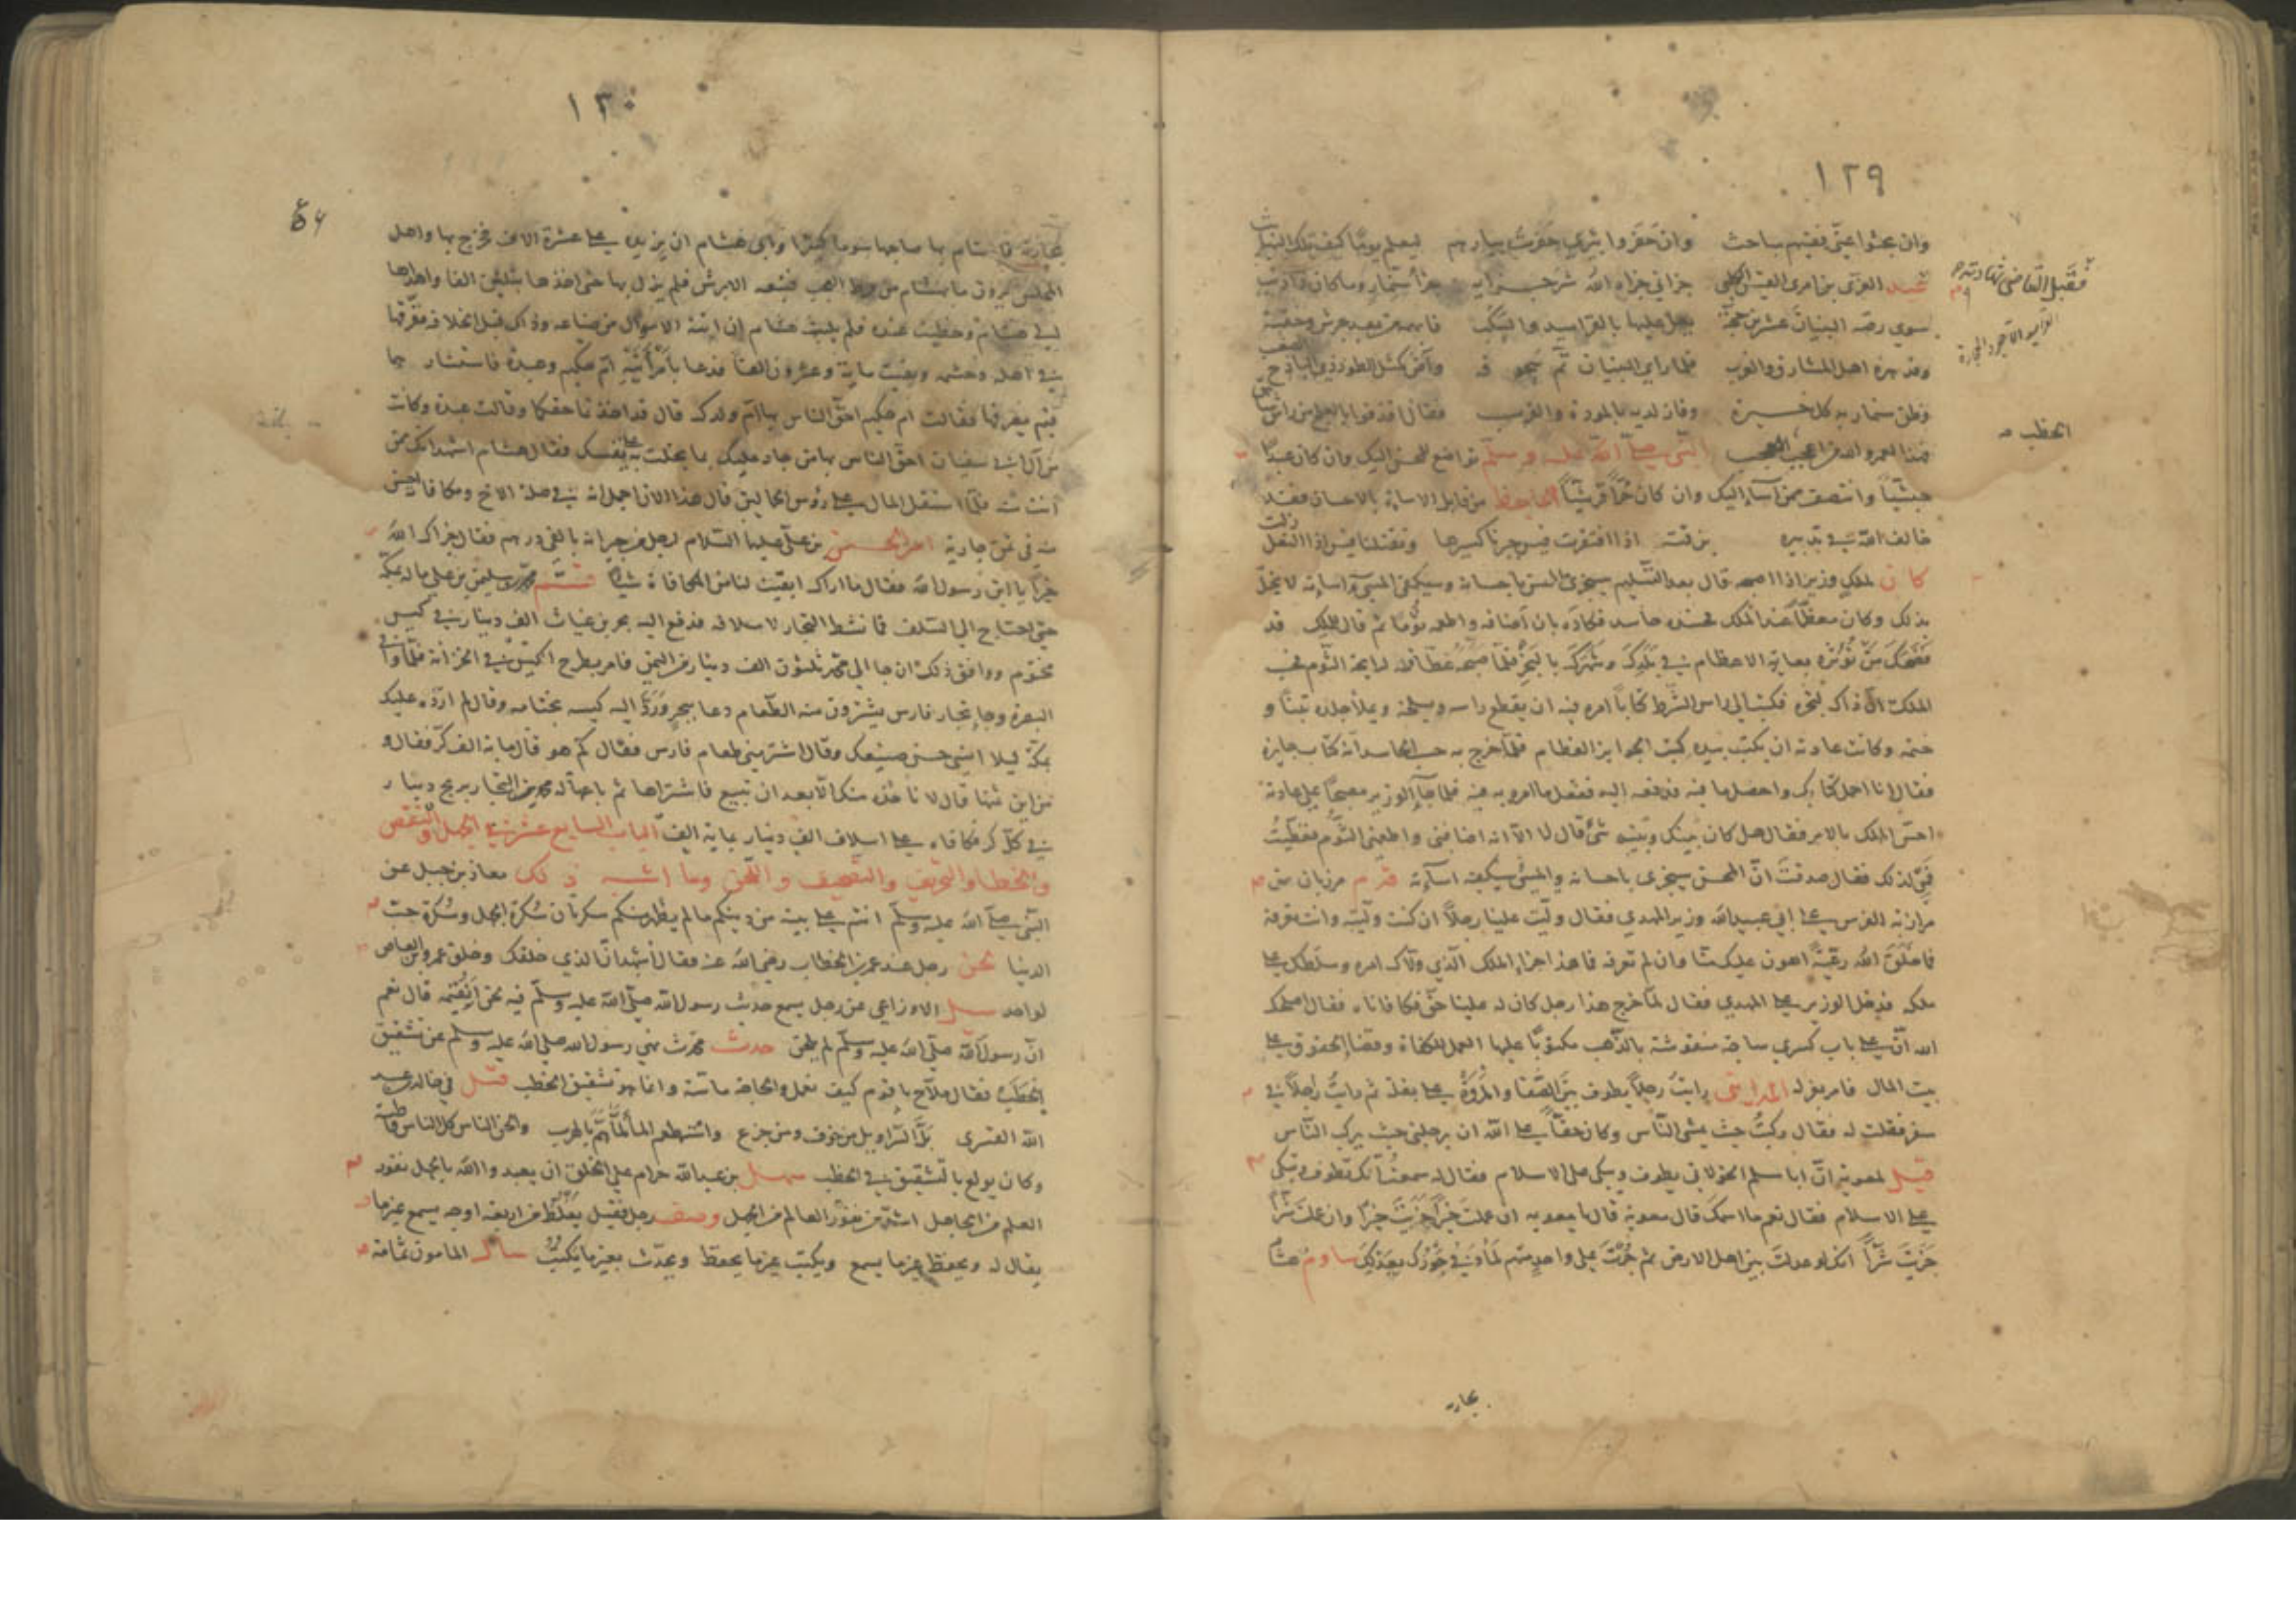 ١٢٩
وان بحثوا عني ففيهم مباحث وان حفروا بيري حفرت بيارهم ليعلم يوما كيف تلك النبائث
عبد العزى بن امرئ القيس الكلبي جزاني جزاه الله شر جزايه جزا سنمار وما كان ذا ذنب
سوى رصه البنيان عشرين حجة يعل عليها بالقراميد والسكب
فلما راى البنيان تم سحوقه وآض كمثل الطود ذي الباذخ الصعب
وظن سنمار به كل حبرة وفاز لديه بالمودة والقرب فقال اقذفوا بالعلج من راس شاهق
فهذا لعمر الله من اعجب الخطب النبي صلى الله عليه وسلم تواضع للمحسن اليك وان كان عبدا
حبشيا وانتصف ممن اسآء إليك وان كان حرا قرشيا الجاحظ من قابل الاساءة بالاحسان فقد
خالف الله في تدبيره بن قتة اذا افتقرت قيس جبرنا كسيرها وتقتلنا قيس اذا النعل زلت
كان لملك وزير اذا اصبح قال بعد التسليم سيجزى المحسن باحسانه وسيكفي المسيء اساءته لا يخل
بذلك وكان معظما عند الملك فحسده حاسد فكاده بان أضافه واطعمه ثوما ثم قال للملك قد
فضحك من تؤثره بغاية الاعظام في بلدك وشهرك بالبخر فلما صبحه غطا فاه لرايحة الثوم فحسب
الملك ان ذاك لبخره فكتب الى راس الشرط كتابا امره فيه ان يقطع راسه ويسلخه ويملأ جلده تبنا و
ختمه وكانت عادته ان يكتب بيده كتب الجوايز العظام فلما خرج به حسب الحاسد أنه كتاب جايزة
فقال انا احمل كتابك واحصل ما فيه فدفعه إليه ففعل ما امر به فيه فلما جآء الوزير مصبحا على عادته
احس الملك بالامر فقال هل كان بينك وبينه شئ قال لا الا انه اضافني واطعمني الثوم فغطيت
فمي لذلك فقال صدقت ان المحسن سيجزى باحسانه والمسيء سيكفيه اسآءته قدم مرزبان من
مرازبة الفرس على ابي عبيد الله وزير المهدي فقال وليت علينا رجلا ان كنت وليته وانت تعرفه
فما خلق الله رعية اهون عليك منا وان لم تعرفه فما هذا جزاء الملك الذي ولاك امره وسلطك على
ملكه فدخل الوزير على المهدي فقال لما خرج هذا رجل كان له علينا حق فكافاناه فقال اصلحك
الله ان على باب كسرى ساجة منقوشة بالذهب مكتوبا عليها العمل للكفاة وقضاء الحقوق على
بيت المال فامر بعزله المدايني رايت رجلا يطوف بين الصفا والمروة على بغلة ثم رايت راجلا في
سفر فقلت له فقال ركبت حيث يمشي الناس وكان حقا على الله ان يرجلني حيث يركب الناس
قيل لمعوية ان ابا مسلم الخولاني يطوف ويبكي على الاسلام فقال له سمعت انك تطوف وتبكي
على الاسلام فقال نعم ما اسمك قال معوية قال يا معوية ان عملت خيرا جزيت خيرا وان عملت شرا
جزيت شرا انك لو عدلت بين اهل الارض ثم جرت على واحد منهم لما وفى جورك بعدلك ساوم هشام
بجارية
الخطب
١٣٠
بجارية فاستام بها صاحبها سوما كبيرا وابى هشام ان يزيد على عشرة الاف فخرج بها واهل
فتبعه الابرش فلم يزل بها حتى اخذها بثلثين الفا واهداها
الى هشام وحظيت عنده فلم يلبث هشام
في اهله وحشمه وبقيت ماية وعشرون الفا فدعا بامرأتيه ام حكيم وعبدة فاستشارهما
فيم يفرقها فقالت ام حكيم احق الناس بها ام ولدك قال قد اخذتا حقكما وقالت عبدة وكانت
من آل ابي سفيان احق الناس بها من جاد عليك بما بخلت به على نفسك فقال هشام اشهد انك ممن
انت منه فلما استقل المال على رؤس الحمالين قال هذا الان اجمل انه في صلة الاخ ومكافاة لحسن
منه في ثمن جارية امر الحسن بن علي عليهما السلام لرجل من جيرانه بالفي درهم فقال جزاك الله
خيرا يا ابن رسول الله فقال ما اراك ابقيت لنا من المكافاة شيا قسم محمد بن سليمن بن علي ماله بمكة
حتى احتاج الى السلف فما نشط التجار لاسلافه فدفع اليه بحر بن غياث الف دينار في كيس
مختوم ووافق ذلك ان جا الى محمد ثلثون الف دينار من اليمن فامر بطرح الكيس في الخزانة فلما وافى
البصرة وجا تجار فارس يشترون منه الطعام دعا ببحر ورد اليه كيسه بختامه وقال لم اردده عليك
بمكة ليلا انسى حسن صنيعك وقال اشتر مني طعام فارس فقال كم هو قال ماية الف كر فقال و
من اين ثمنها قال لا ناخذه منك الا بعد ان تبيع فاشتراها ثم باعها من التجار بربح دينار
في كل كر فكافاه على اسلاف الف دينار بماية الف الباب السابع عشر في الجهل والنقص
والخطا والتحريف والتصحيف واللحن وما اشبه ذلك معاذ بن جبل عن
النبي صلى الله عليه وسلم انتم على بينة من دينكم ما لم يظهر منكم سكرتان سكرة الجهل وسكرة حب
الدنيا لحن رجل عند عمر بن الخطاب رضي الله عنه فقال اشهد ان الذي خلقك وخلق عمرو بن العاص
لواحد سئل الاوزاعي عن رجل يسمع حديث رسول الله صلى الله عليه وسلم فيه لحن أيقيمه قال نعم
ان رسول الله صلى الله عليه وسلم لم يلحن حدث محدث نهى رسول الله صلى الله عليه وسلم عن تشقيق
الحطب فقال ملاح يا قوم كيف نعمل والحاجة ماسة وانما هو تشقيق الخطب قيل في خالد بن عبد
الله القسري بل السراويل من خوف ومن جزع واستطعم الماء لما هم بالهرب والحن الناس كل الناس قاطبة
وكان يولع بالتشقيق في الخطب سهل بن عبد الله حرام على الخلق ان يعبدوا الله بالجهل نفور
العلم من الجاهل اشد من نفور العالم من الجهل وصف رجل فقيل يغلط من اربعة اوجه يسمع غير ما
يقال له ويحفظ غير ما يسمع ويكتب غير ما يحفظ ويحدث بغير ما يكتب سال المامون ثمامة